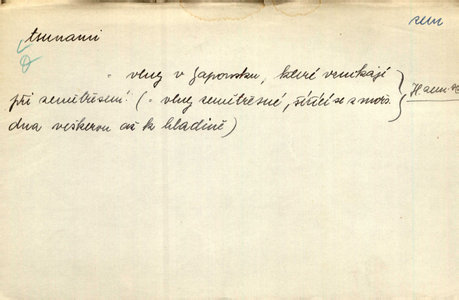 zem
tsunami
= vlny v Japonsku, které vznikají
při zemětřesení. (= vlny zemětřesné, šířící se s moř.
dna veškerou až k hladině)
H zem.